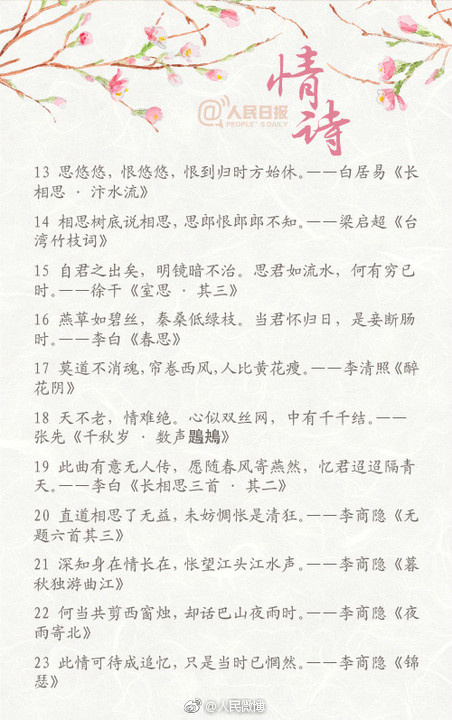 情诗
@人民日报
PEOPLE'S DAILY
13 思悠悠，恨悠悠，恨到归时方始休。——白居易《长
相思 · 汴水流》
14 相思树底说相思，思郎恨郎郎不知。——梁启超《台
湾竹枝词》
15 自君之出矣，明镜暗不治。思君如流水，何有穷已
时。——徐干《室思 · 其三》
16 燕草如碧丝，秦桑低绿枝。当君怀归日，是妾断肠
时。——李白《春思》
17 莫道不消魂，帘卷西风，人比黄花瘦。——李清照《醉
花阴》
18 天不老，情难绝。心似双丝网，中有千千结。——
张先《千秋岁 · 数声鶗鴂》
19 此曲有意无人传，愿随春风寄燕然，忆君迢迢隔青
天。——李白《长相思三首 · 其二》
20 直道相思了无益，未妨惆怅是清狂。——李商隐《无
题六首其三》
21 深知身在情长在，怅望江头江水声。——李商隐《暮
秋独游曲江》
22 何当共剪西窗烛，却话巴山夜雨时。——李商隐《夜
雨寄北》
23 此情可待成追忆，只是当时已惘然。——李商隐《锦
瑟》
@人民微博